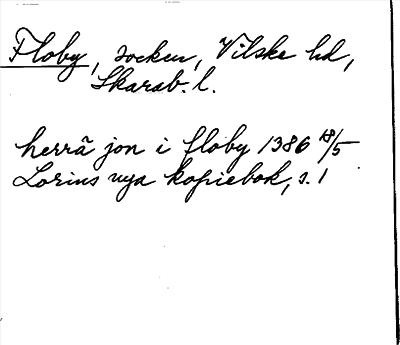 Floby, socken, Vilske hd,
Skarab. l.
herrä jon i floby 1386 18/5
Lorins nya kopiebok, s. 1